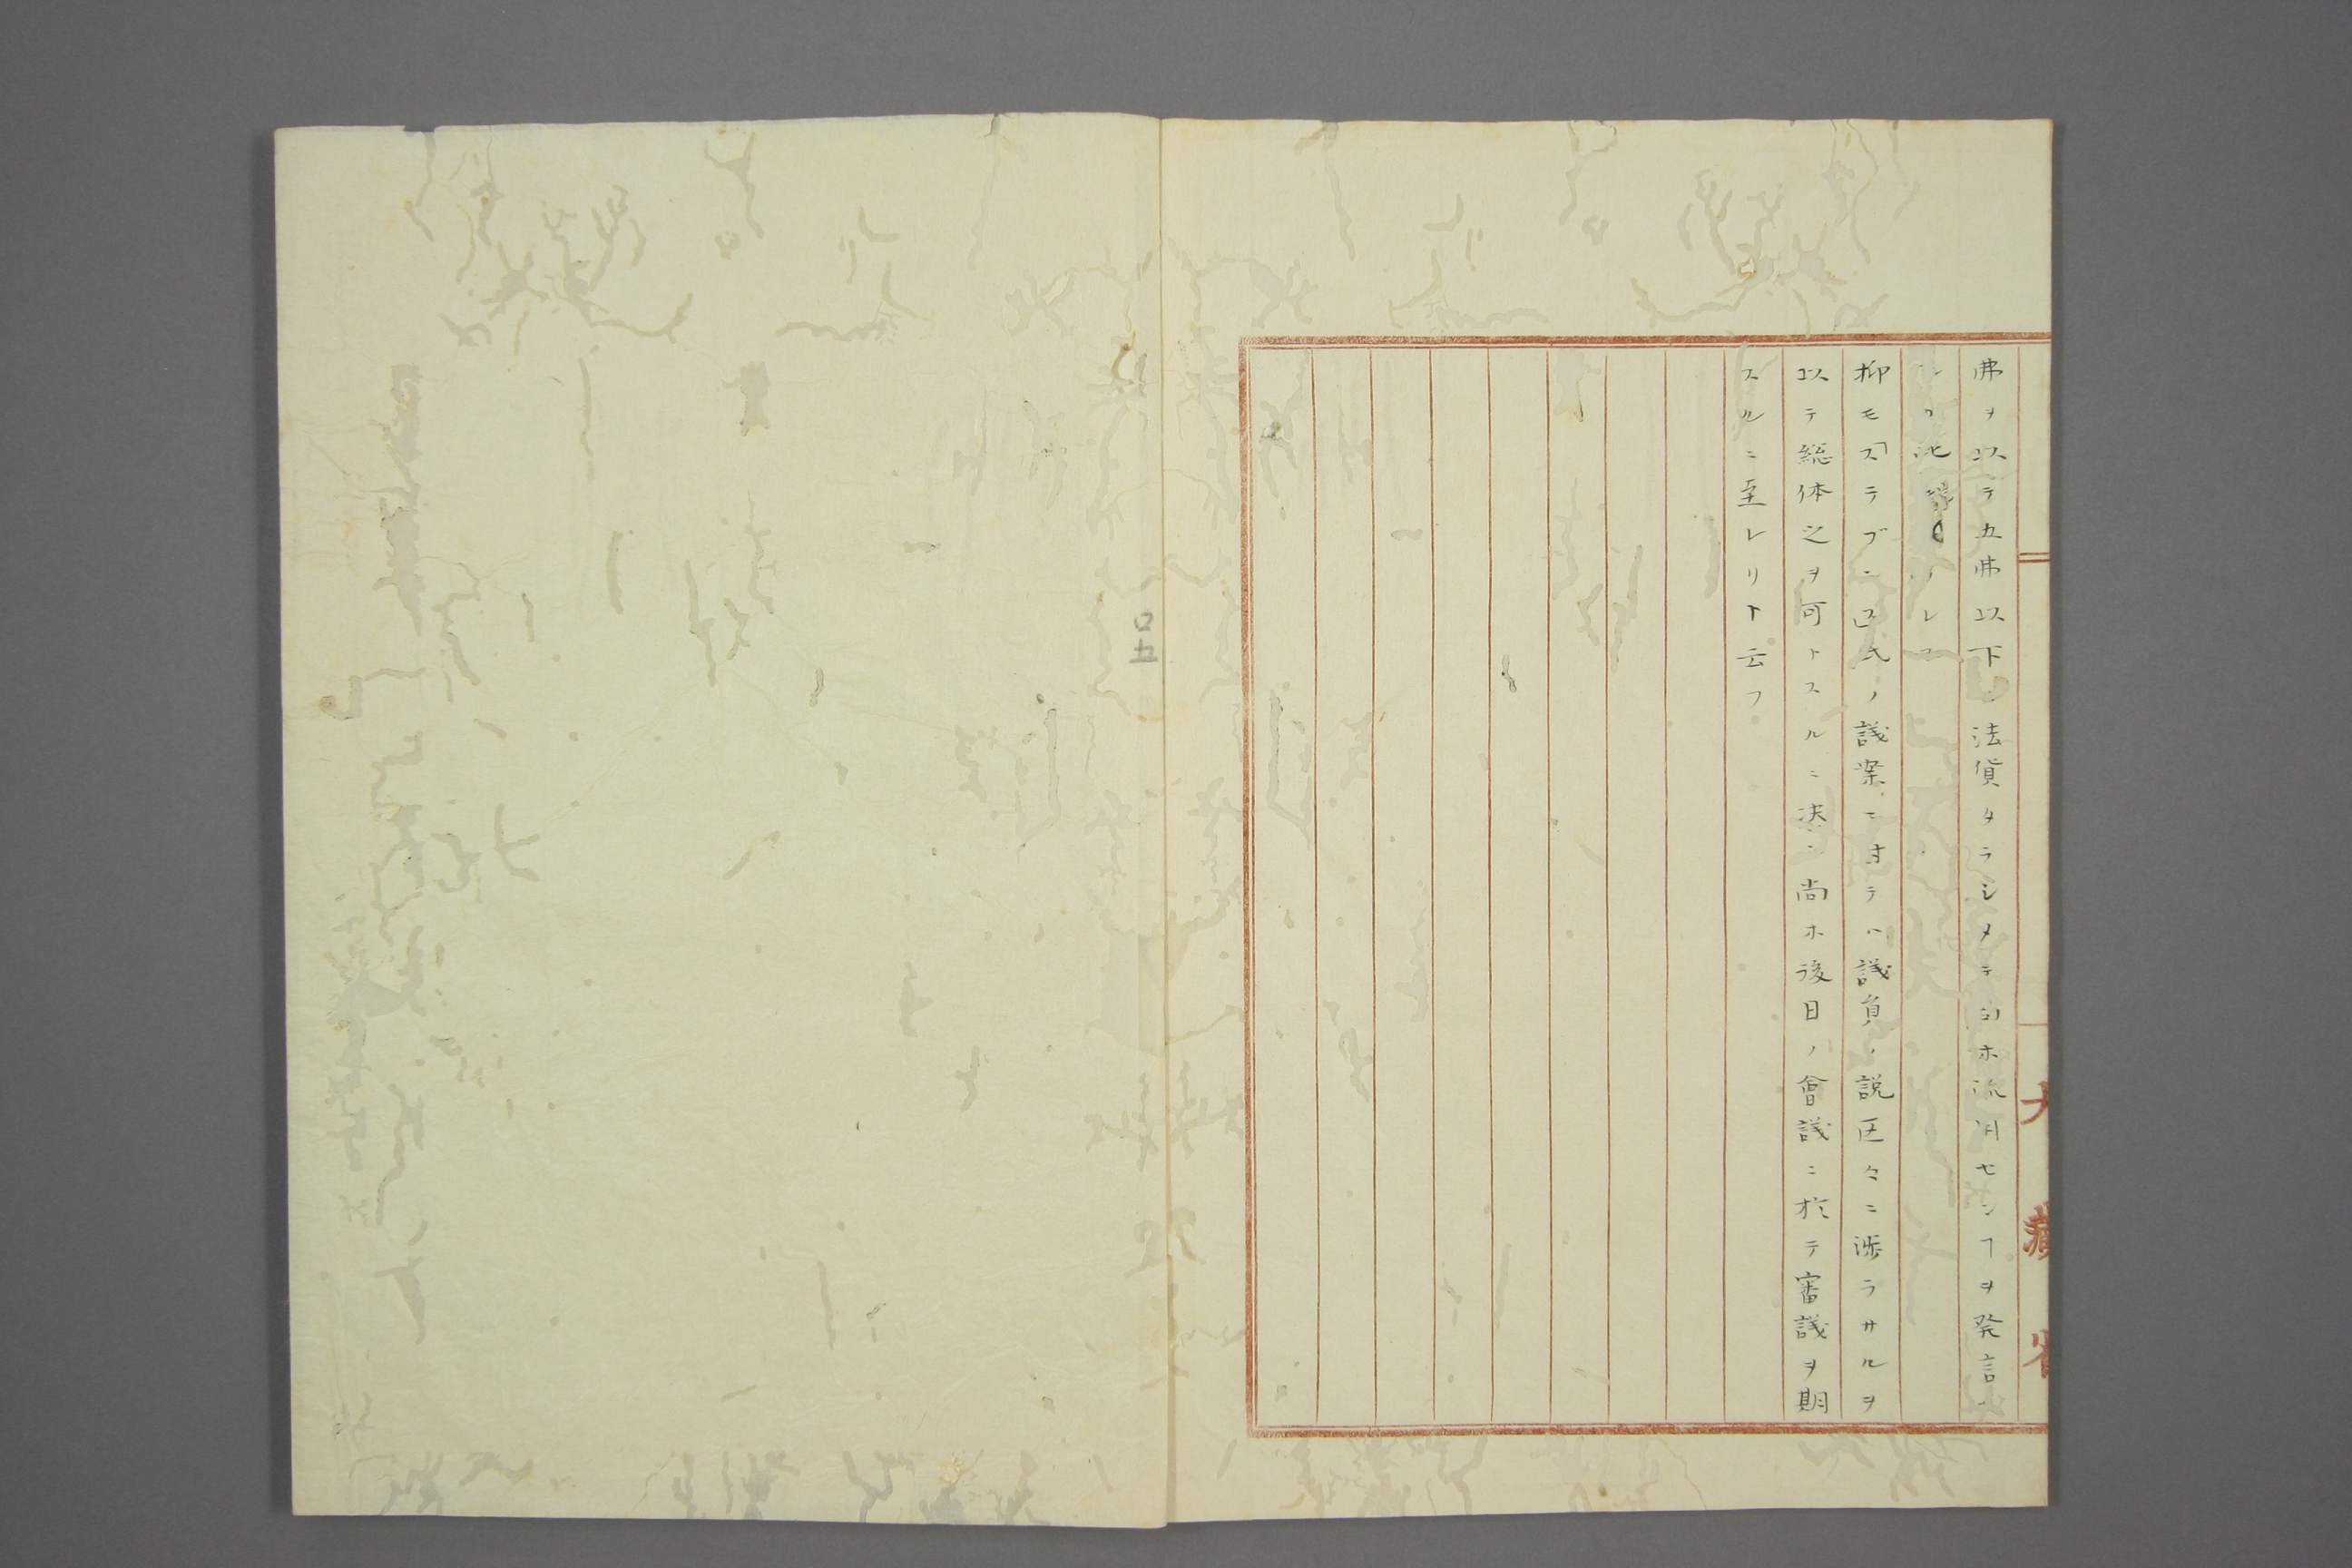 弗ヲ以テ五弗以下ノ法貨タラシメテ尚ホ流用センヿヲ発言
此
抑モ「ステブン」氏ノ議案ニ于テハ議員ノ説区々ニ渉ラサルヲ
以テ総体之ヲ可トスルニ决シ尚ホ後日ノ會議ニ於テ審議ヲ期
スルニ至レリト云フ
大藏省